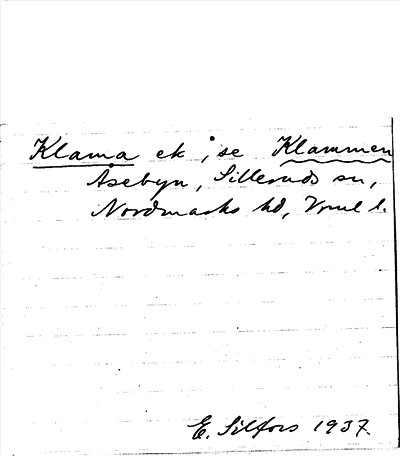 Klama ek, se Klammen
Åsebyn, Silleruds sn,
Nordmarks hd, Vrml l.
E. Silfors 1937.